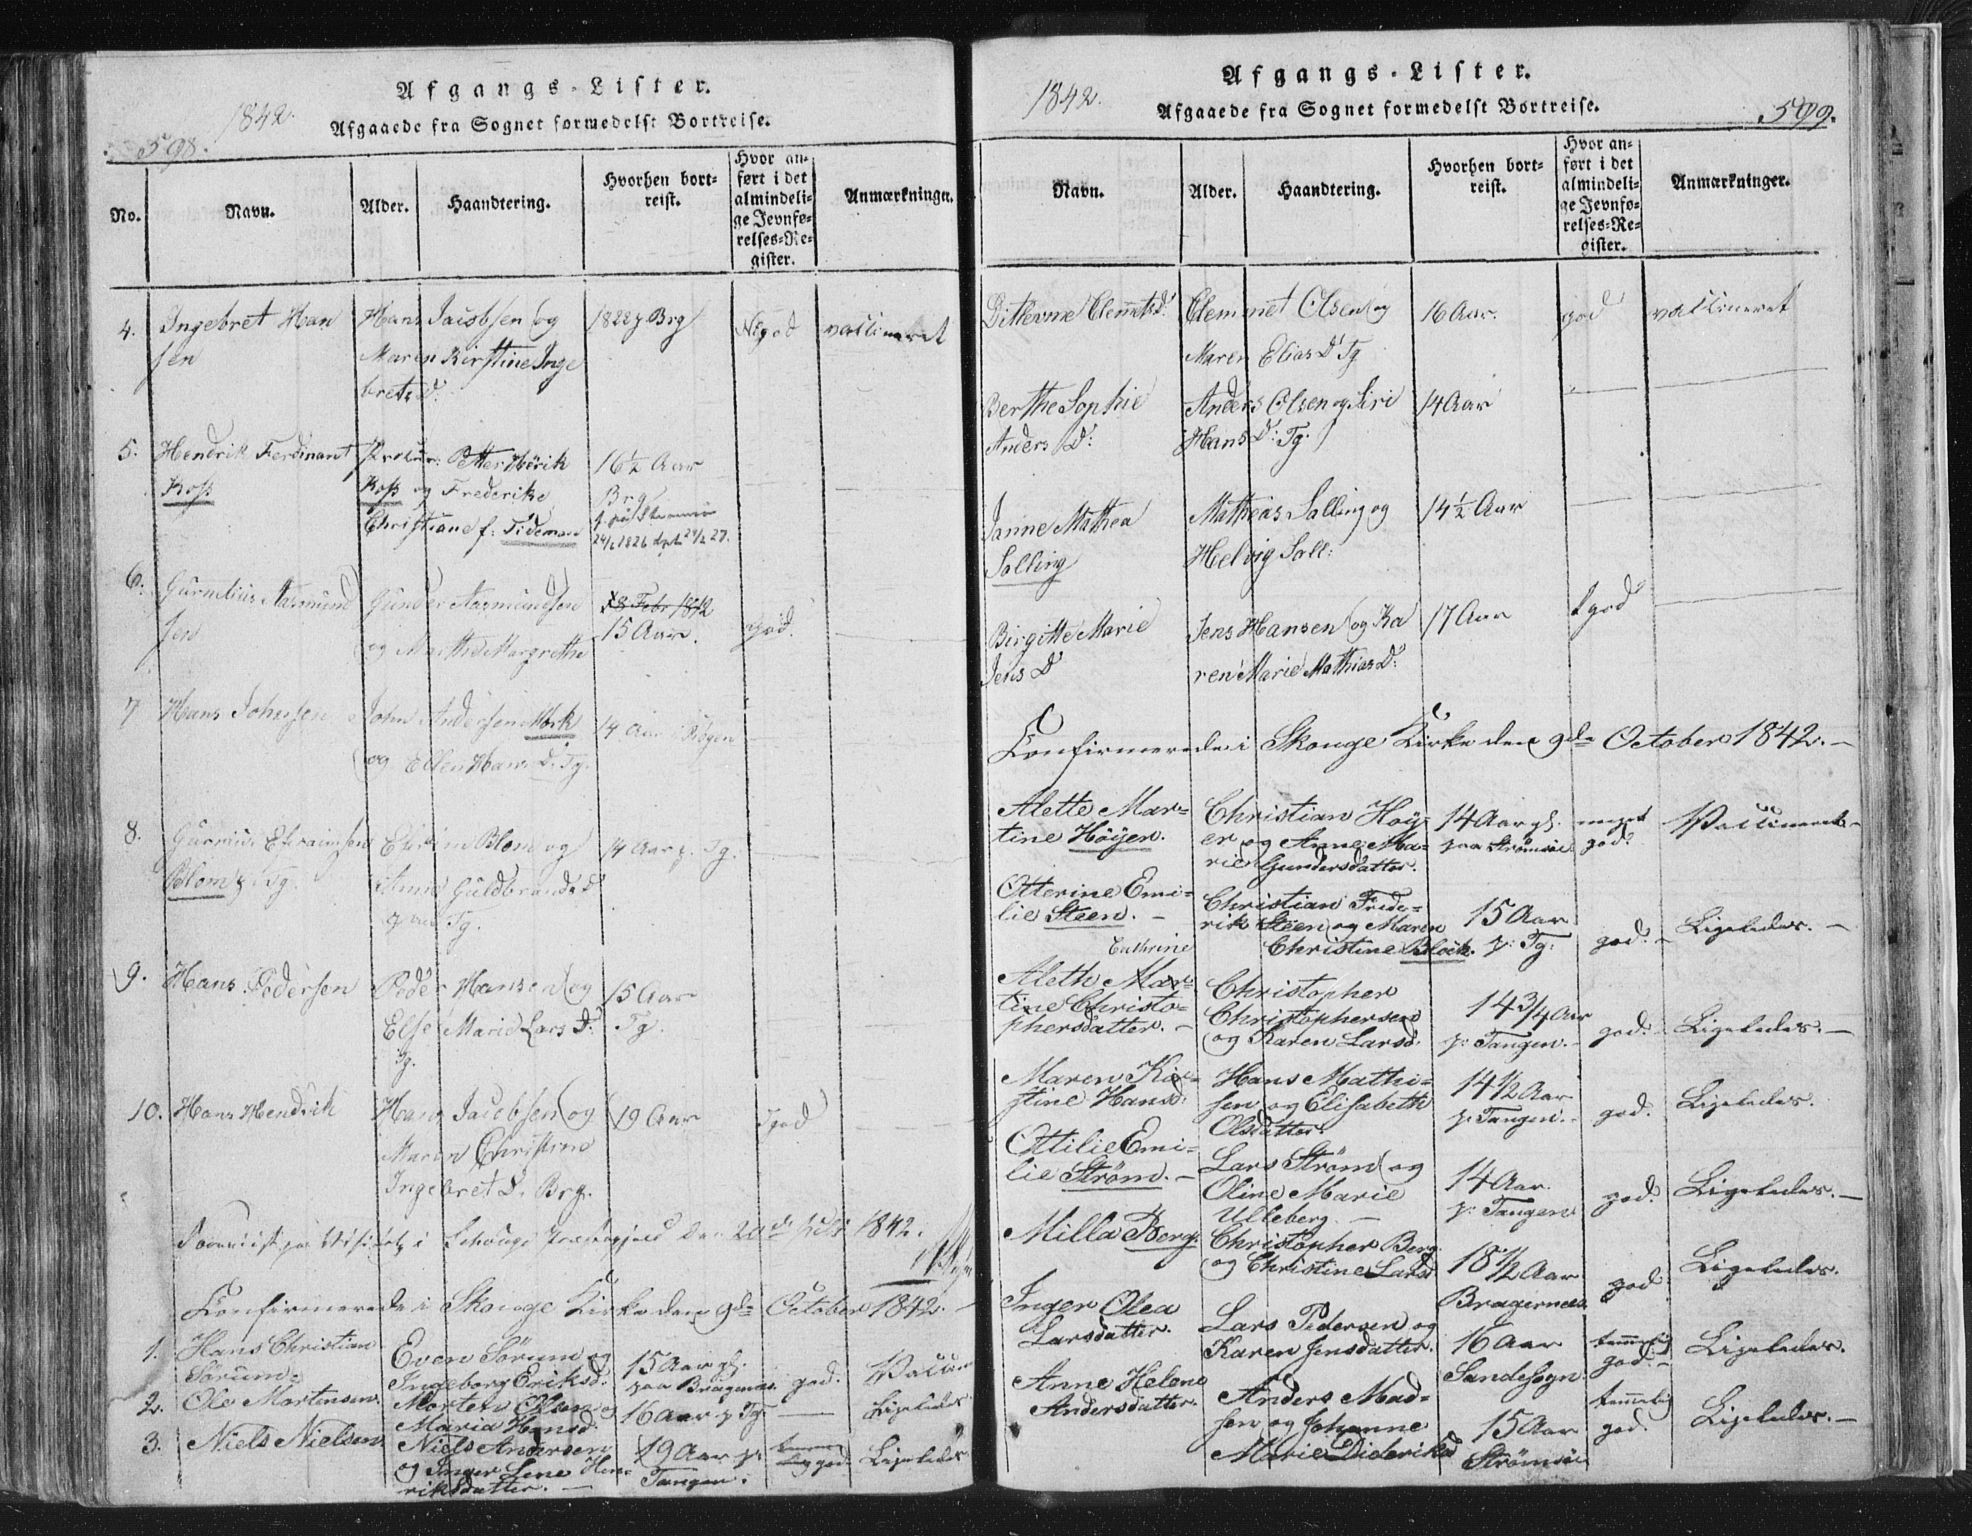 Afgangs-Lister.
1842.
598.
Afgaaede fra Sognet formedelst Bortreise.
No.
Navn.
Alder.
Haandtering.
Hvorhen bort-
reist.
Hvor an-
ført i det
almindeli-
ge Jevnfø-
relses-Re-
gister.
Anmærkninger.
4. Ingebret Han
sen
Hans Jacobsen og
Maren Kirstine Inge
brets D.
Brg
god
vaccineret
5. Hendrik Ferdinant
Koss
Petter
Koss og Frederike
Christiane f: Tideman
16½ Aar
Brg
6. Aasmund
sen
Gunder Aasmundsen
og Marthe Margrethe
15 Aar.
god.
7 Hans Johnsen
John Andersen Mork
og Ellen Hans D. Tg.
14 Aar
8. Efraimsen
Blom p. Tg.
Blom og
Anne Guldbrands D
Tg.
14 Aar p. Tg.
9. Hans Pedersen
Peder Hansen og
Else Marie Lars D.
Tg.
15 Aar
Tg.
10. Hans Hendrik
Hans Jacobsen og
Maren Christine
Ingebret D. Brg.
19 Aar
god
i 1842.
Confirmerede i Skouge Kirke den 9de October 1842. —
1. Hans Christian
Sørum.
Even Sørum og
Ingeborg Eriksd.
15 Aar gl.
paa Bragernæs.
god.
2. Ole Mortensen.
Morten Olsen og
Maria Hansd.
16 Aar p Tg.
Ligeledes
3. Niels Nielsen.
Niels Andersen
og Inger Lene Hen-
riksdatter. —
19 Aar p:
Tangen.
god.
Ligeledes.
Afgangs-Lister.
1842.
599.
Afgaaede fra Sognet formedelst Bortreise.
Navn.
Alder.
Haandtering.
Hvorhen bort-
reist.
Hvor an-
ført i det
almindeli-
ge Jevnfø-
relses-Re-
gister.
Anmærkninger.
Clemmet Olsen og
Maren Elias D Tg
16 Aar.
god
vaccineret
Berthe Sophie
Anders D:
Anders Olsen og Siri
Hans D: Tg.
14 Aar
Janne Mathea
Salling
Mathias Salling og
Helvig Sall:
14½ Aar
Birgitte Marie
Jens D
Jens Hansen og Ka
ren Marie Mathias D:
17 Aar
god
Confirmerede i Skouge Kirke den 9de October 1842. —
Alette Mar-
tine Höyer.
Christian Höy-
er og Anne Ma-
rie Gundersdatter.
14 Aar gl.
paa Strömsöe.
meget
god.
Vaccineret. —
Otterine Emi-
lie Steen. —
Christian Frede-
rik Steen og Maren
Christine Block.
15 Aar
p: Tg:
god. —
Ligeledes. —
Cathrine
Aleth Mar-
tine Christo-
phersdatter. —
Christopher
Christophersen
og Karen Larsd.
14 3/4 Aar
p: Tangen. —
god. —
Ligeledes. —
Maren Kir-
stine Hansd.
Hans Mathi-
sen og Elisabeth
Olsdatter.
14½ Aar
p: Tangen. —
god.
Ligeledes.
Ottilie Emi-
lie Strøm. —
Lars Strøm og
Oline Marie
Ulleberg. —
14 Aar.
p: Tangen
god.
Ligeledes. —
Milla Berg.
Christopher Berg
og Christine Larsd
18½ Aar
Bragernæs.
god.
Ligeledes.
Inger Olea
Larsdatter.
Lars Pedersen og
Karen Jensdatter.
16 Aar
Sande Sogn.
temmelig
god. —
Ligeledes.
Anne Helene
Andersdatter.
Anders Mad-
sen og Johanne
Marie Dideriksd
15 Aar
Strömsöe
temmelig
god.
Ligeledes. —